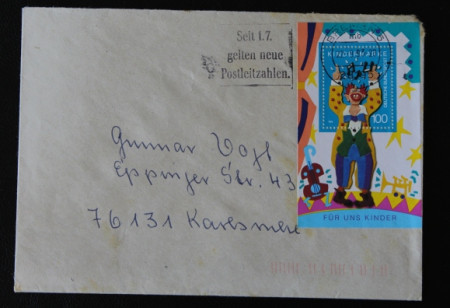 Seit 1.7.
gelten neue
Postleitzahlen.
KINDERMARKE
100
FÜR UNS KINDER
Gunnar Vogt
Eppinger Str. 43
76131 Karlsruhe